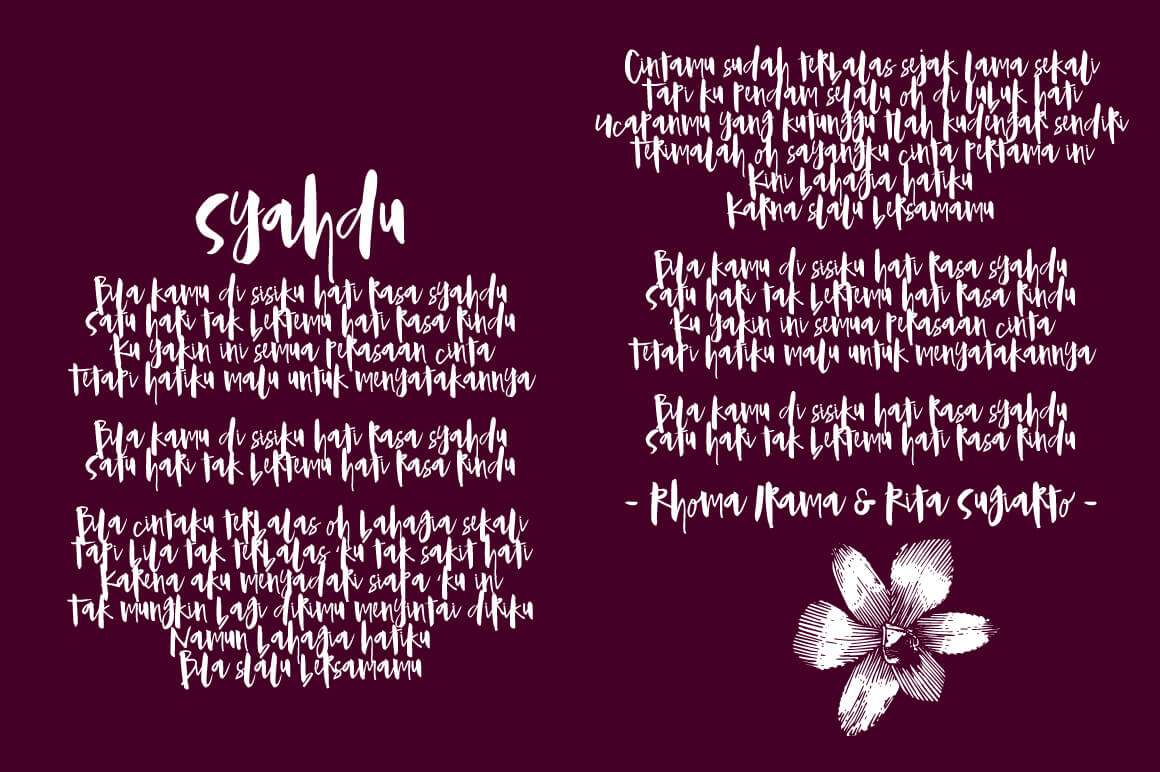 Syahdu
Bila kamu di sisiku hati rasa syahdu
Satu hari tak bertemu hati rasa rindu
'Ku yakin ini semua perasaan cinta
Tetapi hatiku malu untuk menyatakannya
Bila kamu di sisiku hati rasa syahdu
Satu hari tak bertemu hati rasa rindu
Bila cintaku terbalas oh bahagia sekali
Tapi bila tak terbalas 'ku tak sakit hati
Karena aku menyadari siapa 'ku ini
Tak mungkin bagi dirimu menyintai diriku
Namun bahagia hatiku
Bila slalu bersamamu
Cintamu sudah terbalas sejak lama sekali
Tapi ku pendam selalu oh di lubuk hati
Ucapanmu yang kutunggu tlah kudengar sendiri
Terimalah oh sayangku cinta pertama ini
Kini bahagia hatiku
Karna slalu bersamamu
Bila kamu di sisiku hati rasa syahdu
Satu hari tak bertemu hati rasa rindu
'Ku yakin ini semua perasaan cinta
Tetapi hatiku malu untuk menyatakannya
Bila kamu di sisiku hati rasa syahdu
Satu hari tak bertemu hati rasa rindu
- Rhoma Irama & Rita Sugiarto -